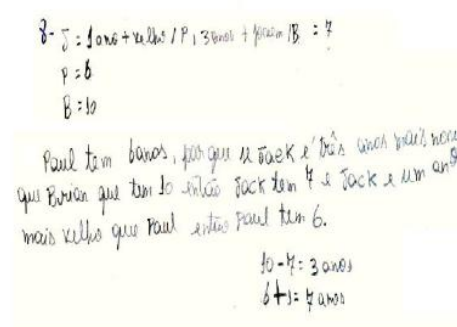 8- J = 1 ano + velho / P, 3 anos + jovem / B. = 7
P = 6
B = 10
Paul tem 6 anos, porque se Jack é três anos mais novo
que Brian que tem 10 então Jack tem 7 e Jack e um ano
mais velho que Paul então Paul tem 6.
10 - 7 = 3 anos
6 + 1 = 7 anos